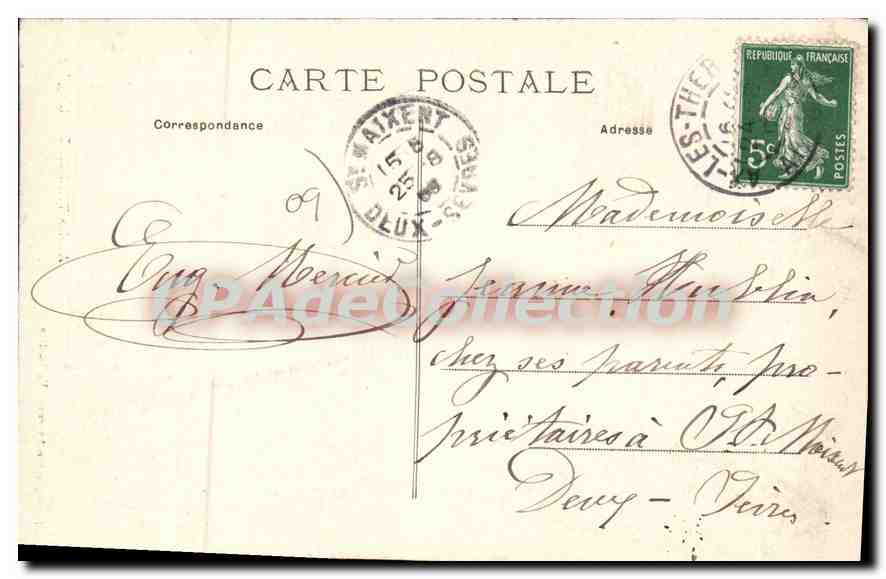 CARTE POSTALE
Correspondance
Adresse
RÉPUBLIQUE FRANÇAISE
5c
POSTES
-LES-THER
ST MAIXENT
15 5
25 -8
DEUX-SEVRES
09
Eug. Mercier
CPAdeCollection
Mademoiselle
Jeanne
chez ses parents, pro-
priétaires à St. Maixent
Deux-Sèvres